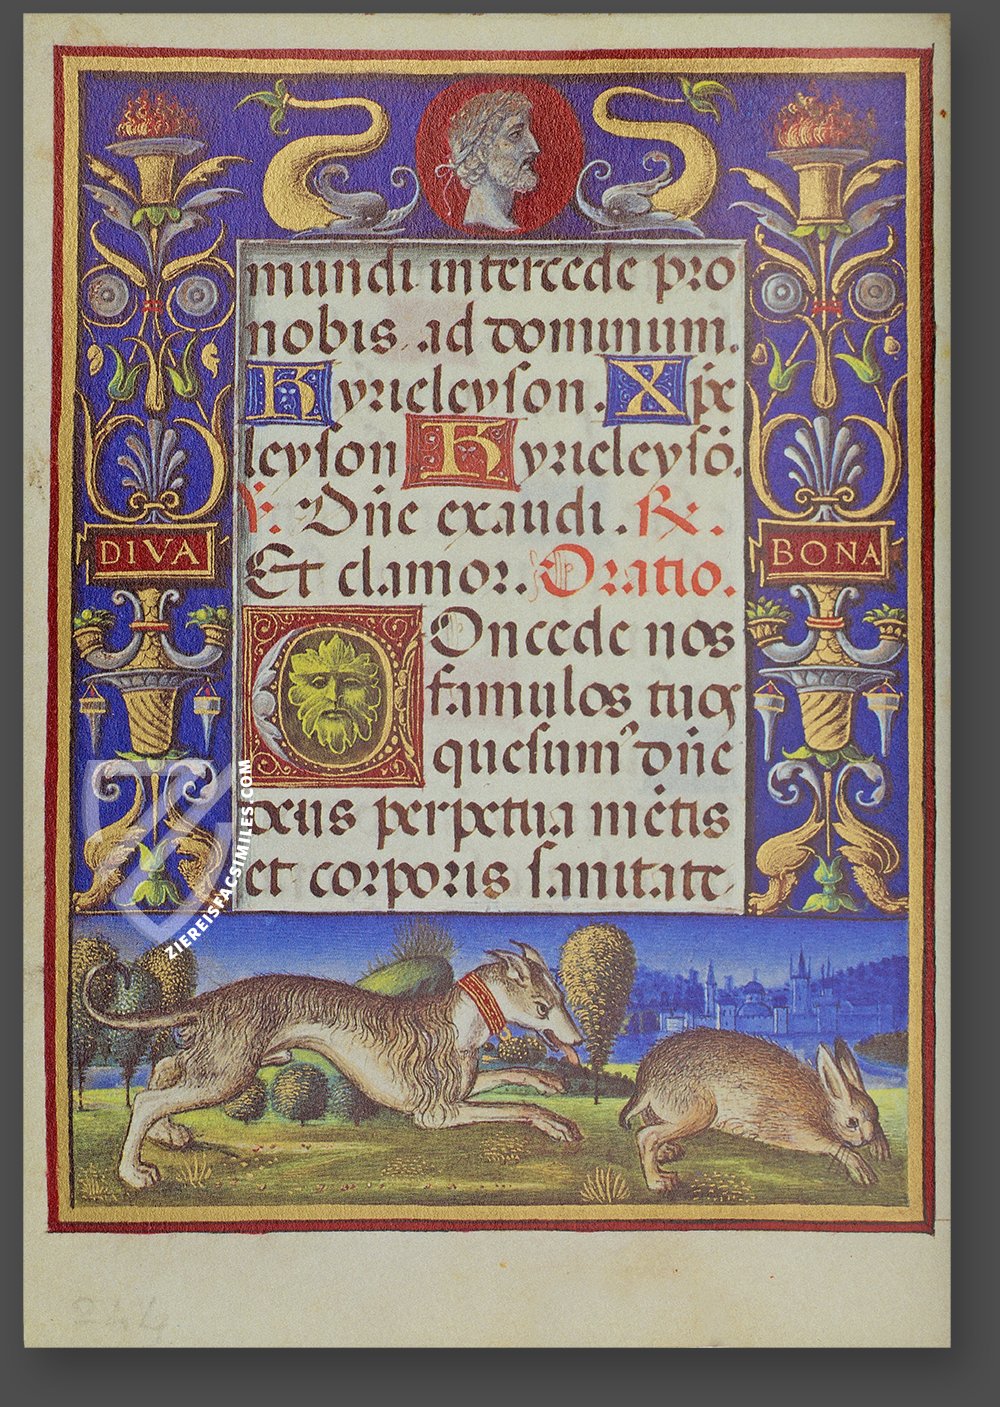 mundi intercede pro
nobis ad dominum.
Kyrieleyson. Xp̄e
leyson Kyrieleysō.
V: Dn̄e exaudi. R.
Et clamor. Oratio.
Concede nos
famulos tuos
quesum9 dn̄e
deus perpetua mētis
et corporis sanitate
DIVA
BONA
ZIEREISFACSIMILES.COM
244